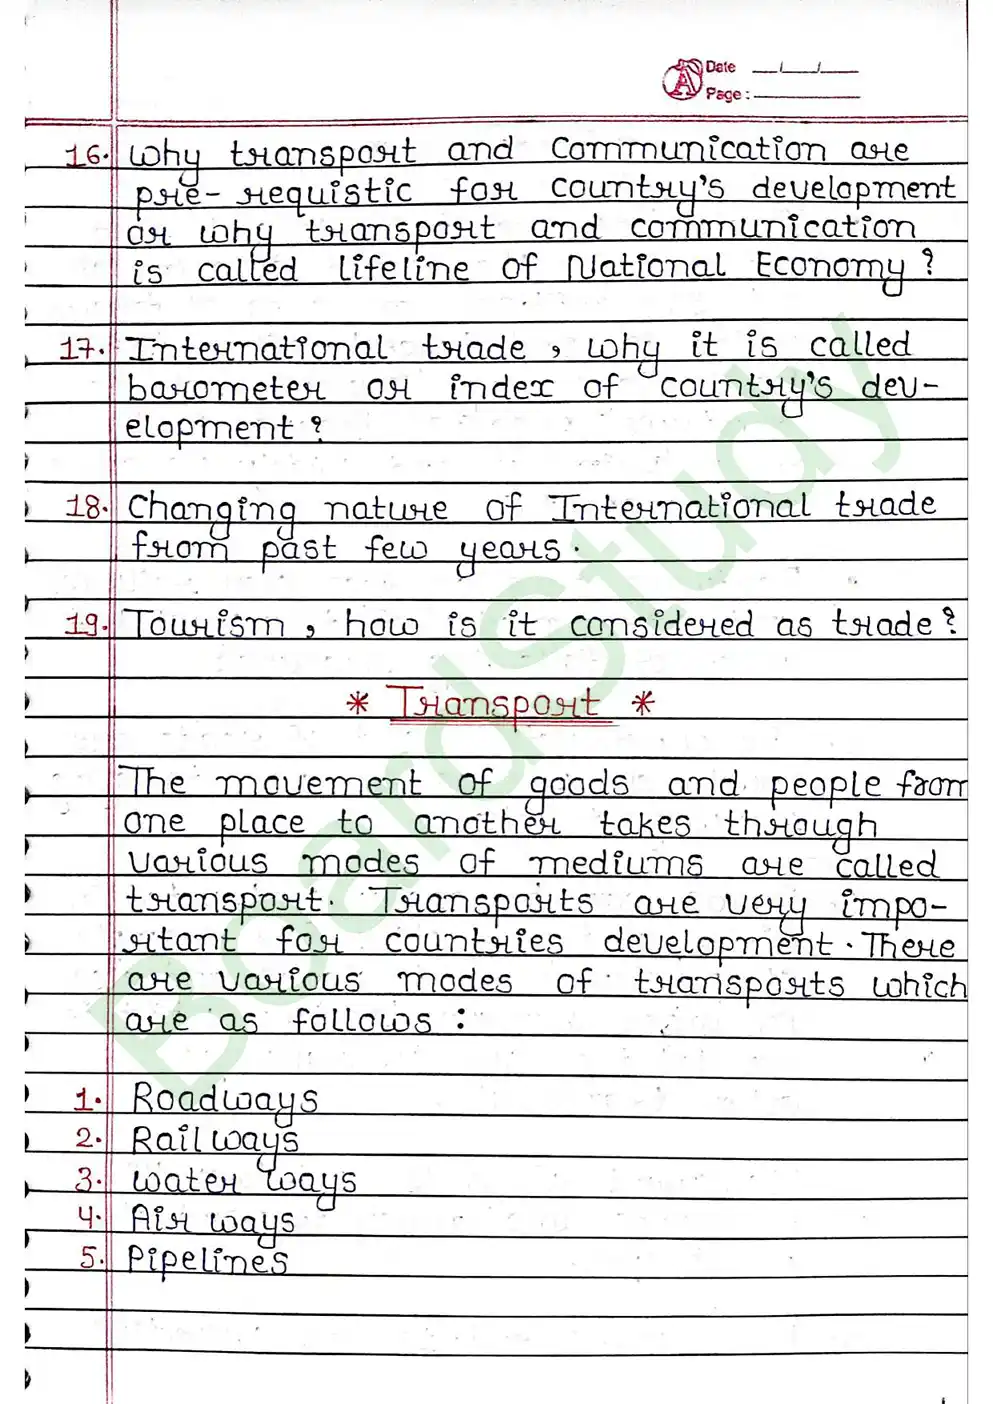 Date __/__/__
Page: ______
16. Why transport and communication are
pre-requistic for country's development
or why transport and communication
is called lifeline of National Economy?
17. International trade, why it is called
barometer or index of country's dev-
elopment?
18. Changing nature of International trade
from past few years.
19. Tourism, how is it considered as trade?
* Transport *
The movement of goods and people from
one place to another takes through
various modes of mediums are called
transport. Transports are very impo-
rtant for countries development. There
are various modes of transports which
are as follows:
1. Roadways
2. Rail ways
3. water ways
4. Air ways
5. Pipelines
BoardStudy